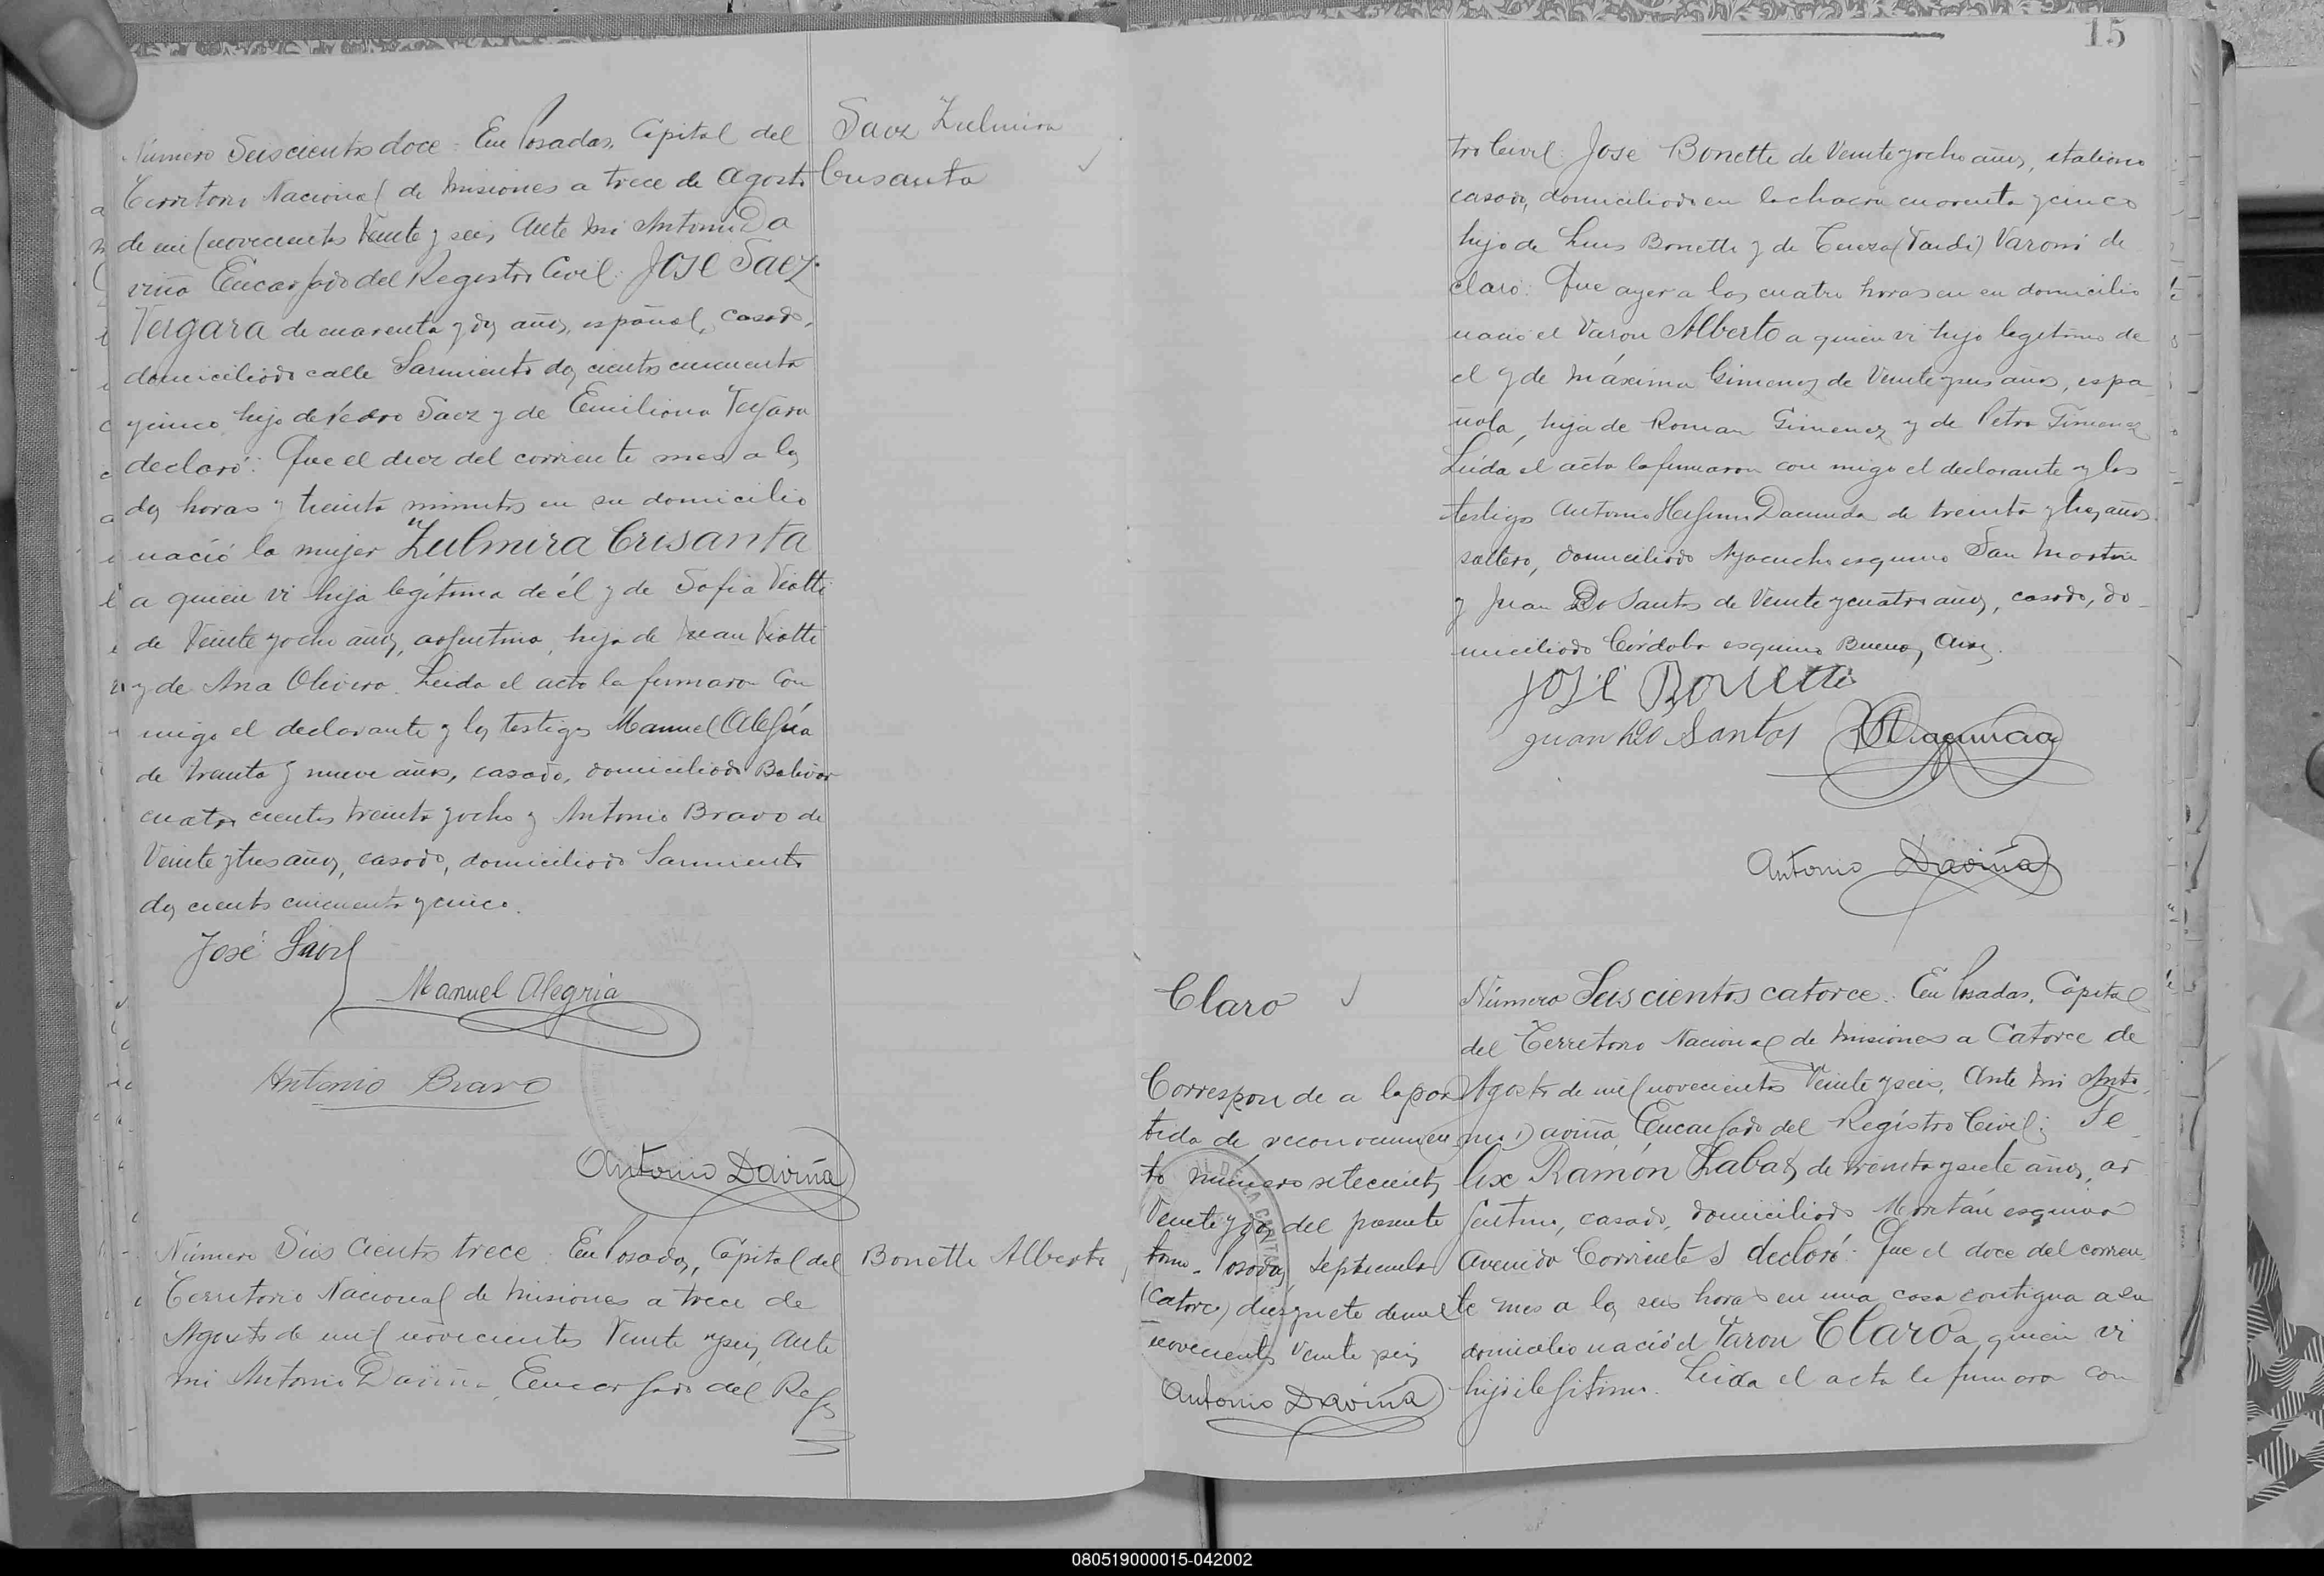 Número Seiscientos doce: En Posadas, Capital del
Territorio Nacional de Misiones a trece de Agosto
de mil novecientos Veinte y seis, Ante mi Antonio Da
viña Encargado del Registro Civil: José Saez
Vergara de cuarenta y dos años, español, casado,
domiciliado calle Sarmiento dos cientos cincuenta
y cinco hijo de Pedro Saez y de Emiliana Vergara
declaró: Que el diez del corriente mes a las
dos horas y treinta minutos en su domicilio
nació la mujer Zulmira Crisanta
a quien vi hija legítima de él y de Sofia Viotti
de Veinte y ocho años, argentina, hija de Juan Viotti
y de Ana Olivera. Leida el acta la firmaron con
migo el declarante y los testigos Manuel Alegria
de treinta y nueve años, casado, domiciliado Bolivar
cuatro cientos treinta y ocho y Antonio Bravo de
Veinte y tres años, casado, domiciliado Sarmiento
dos cientos cincuenta y cinco.
José Saez
Manuel Alegria
Antonio Bravo
Antonio Daviña
Saez Zulmira
Crisanta
Número Seis cientos trece: En Posadas, Capital del
Territorio Nacional de Misiones a trece de
Agosto de mil novecientos Veinte y seis, Ante
mi Antonio Daviña, Encargado del Regis
Bonette Alberto
15
tro Civil: José Bonette de Veinte y ocho años, italiano
casado, domiciliado en la chacra cuarenta y cinco
hijo de Luis Bonette y de Tereza Varoni de
claró: Que ayer a las cuatro horas en su domicilio
nació el Varon Alberto a quien vi hijo legítimo de
el y de Máxima Gimenez de Veinte y seis años, espa
ñola, hija de Roman Gimenez y de Petra Gimenez
Leida el acta la firmaron con migo el declarante y los
testigos Antonio Dacunda de treinta y tres años
soltero, domiciliado Ayacucho esquina San Martin
y Juan Do Santos de Veinte y cuatro años, casado, do
miciliado Córdoba esquina Buenos Aires.
José Bonette
Juan Do Santos
Antonio Daviña
Claro
Corresponde a la par
tida de reconocimien
to número setecientos
Veinte y dos del presente
tomo. Posadas Septiembre
(catorce) diez y siete de mil
novecientos Veinte y seis
Antonio Daviña
Número Seis cientos catorce: En Posadas, Capital
del Territorio Nacional de Misiones a Catorce de
Agosto de mil novecientos Veinte y seis, Ante mi Anto
nio Daviña, Encargado del Registro Civil: Fe
lix Ramón Zabat, de treinta y siete años, ar
gentino, casado, domiciliado esquina
Avenida Corrientes declaró: Que el doce del corrien
te mes a las seis horas en una casa contigua a su
domicilio nació el Varon Claro a quien vi
hijo ilegítimo. Leida el acta la firmaron con
080519000015-042002